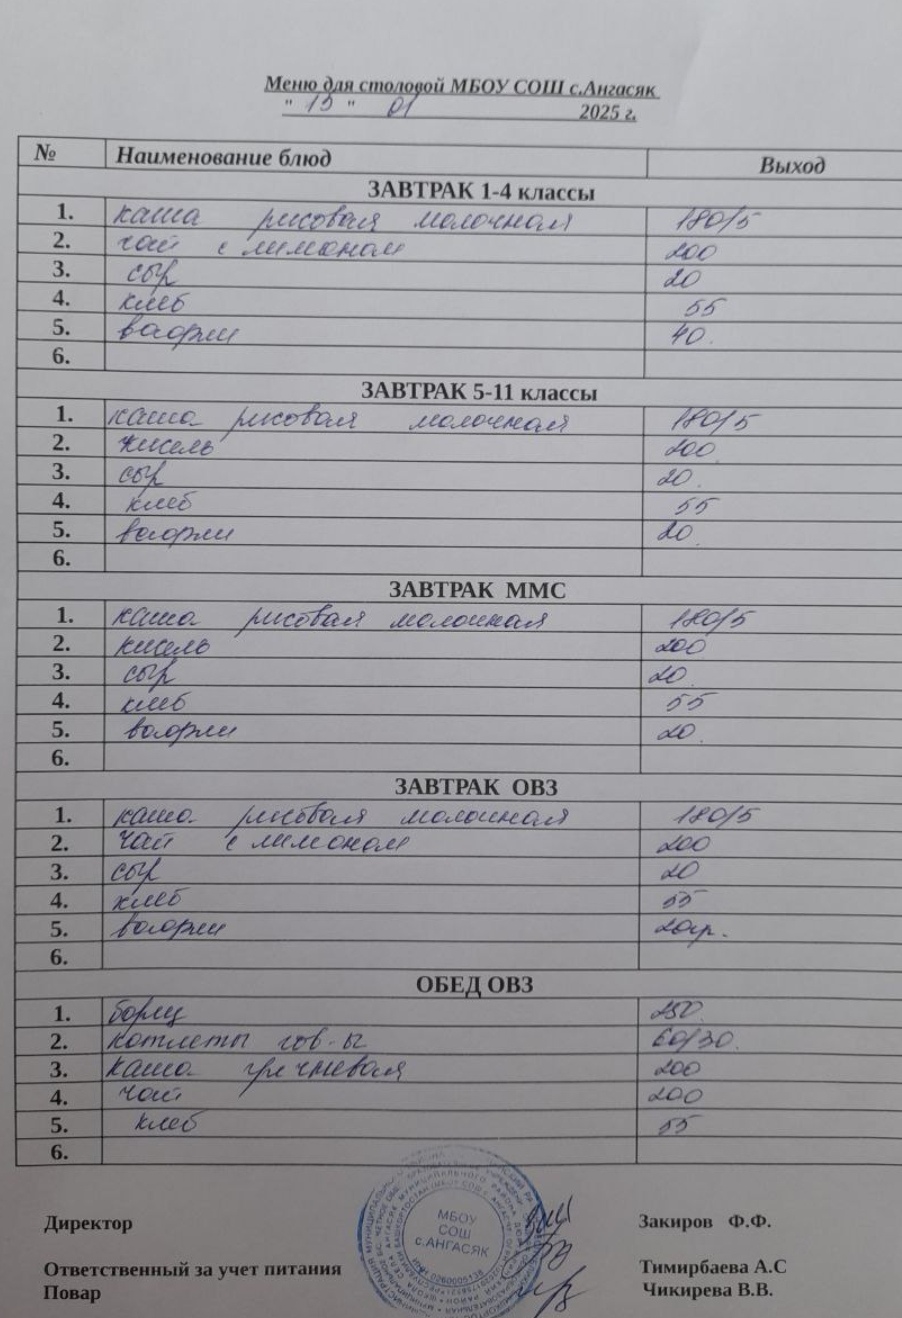 Меню для столовой МБОУ СОШ с.Ангасяк
" 15 " 01 2025 г.
№ Наименование блюд Выход
ЗАВТРАК 1-4 классы
1. каша рисовая молочная 180/5
2. чай с лимоном 200
3. сыр 20
4. хлеб 55
5. вафли 40.
6.
ЗАВТРАК 5-11 классы
1. каша рисовая молочная 180/5
2. кисель 200
3. сыр 20.
4. хлеб 55
5. вафли 20.
6.
ЗАВТРАК ММС
1. каша рисовая молочная 180/5
2. кисель 200
3. сыр 20.
4. хлеб 55
5. вафли 20.
6.
ЗАВТРАК ОВЗ
1. каша рисовая молочная 180/5
2. чай с лимоном 200
3. сыр 20
4. хлеб 55
5. вафли 20гр.
6.
ОБЕД ОВЗ
1. борщ 250.
2. котлеты гов-ы 60/30.
3. каша гречневая 200
4. чай 200
5. хлеб 55
6.
МБОУ
СОШ
с.АНГАСЯК
Директор Закиров Ф.Ф.
Ответственный за учет питания Тимирбаева А.С
Повар Чикирева В.В.